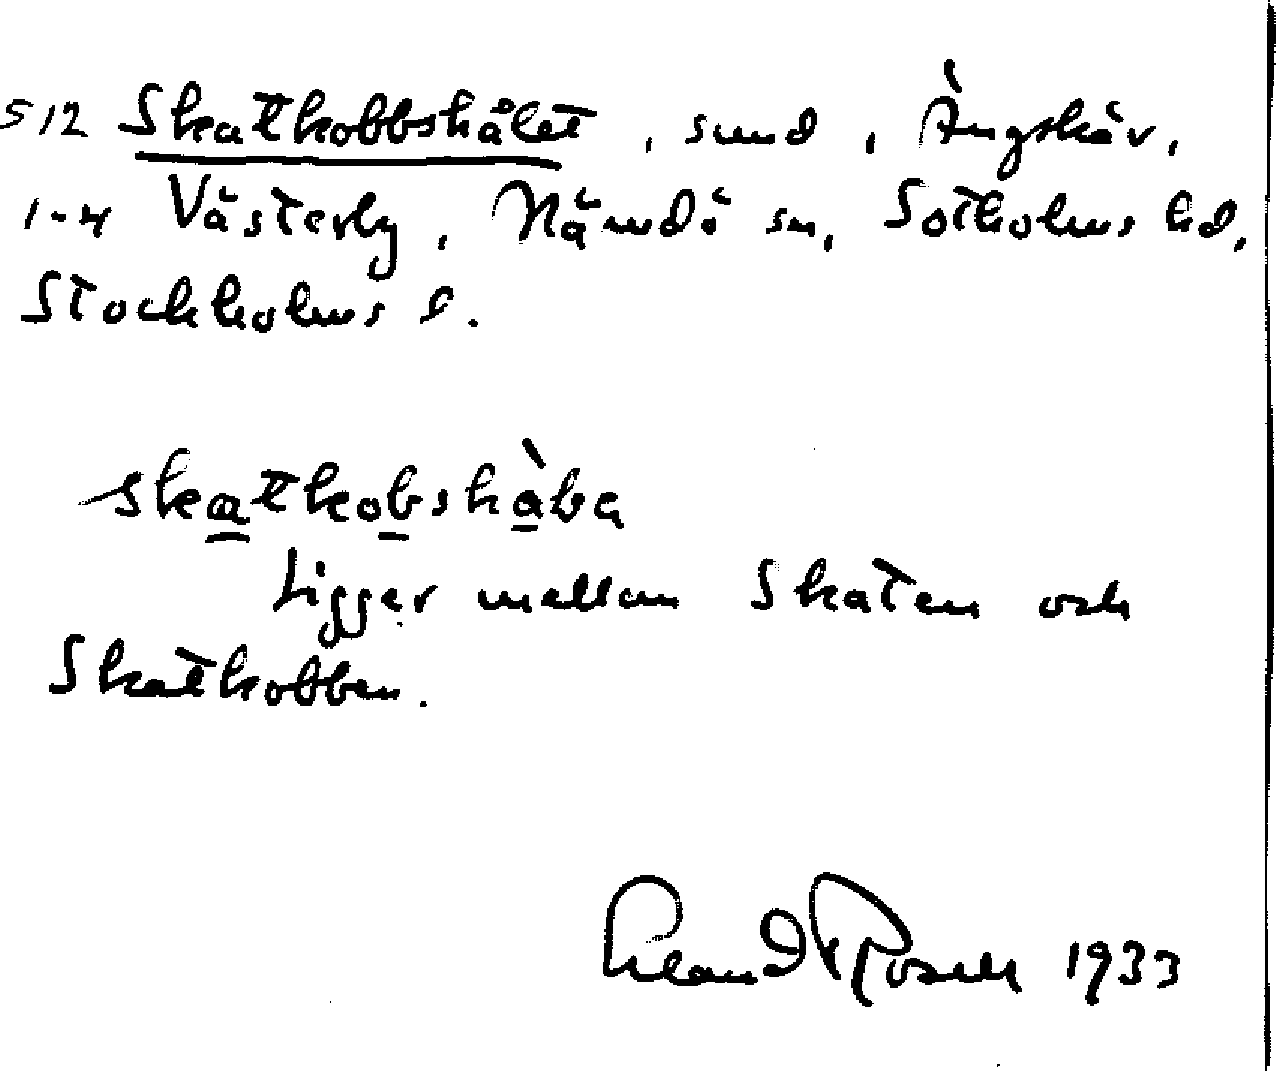 512 Skatkobbshålet, sund, Ängskär,
1-4 Västerby, Nämdö sn, Sotholms hd,
Stockholms l.
skatkobshåla
Ligger mellan Skaten och
Skatkobben.
1933